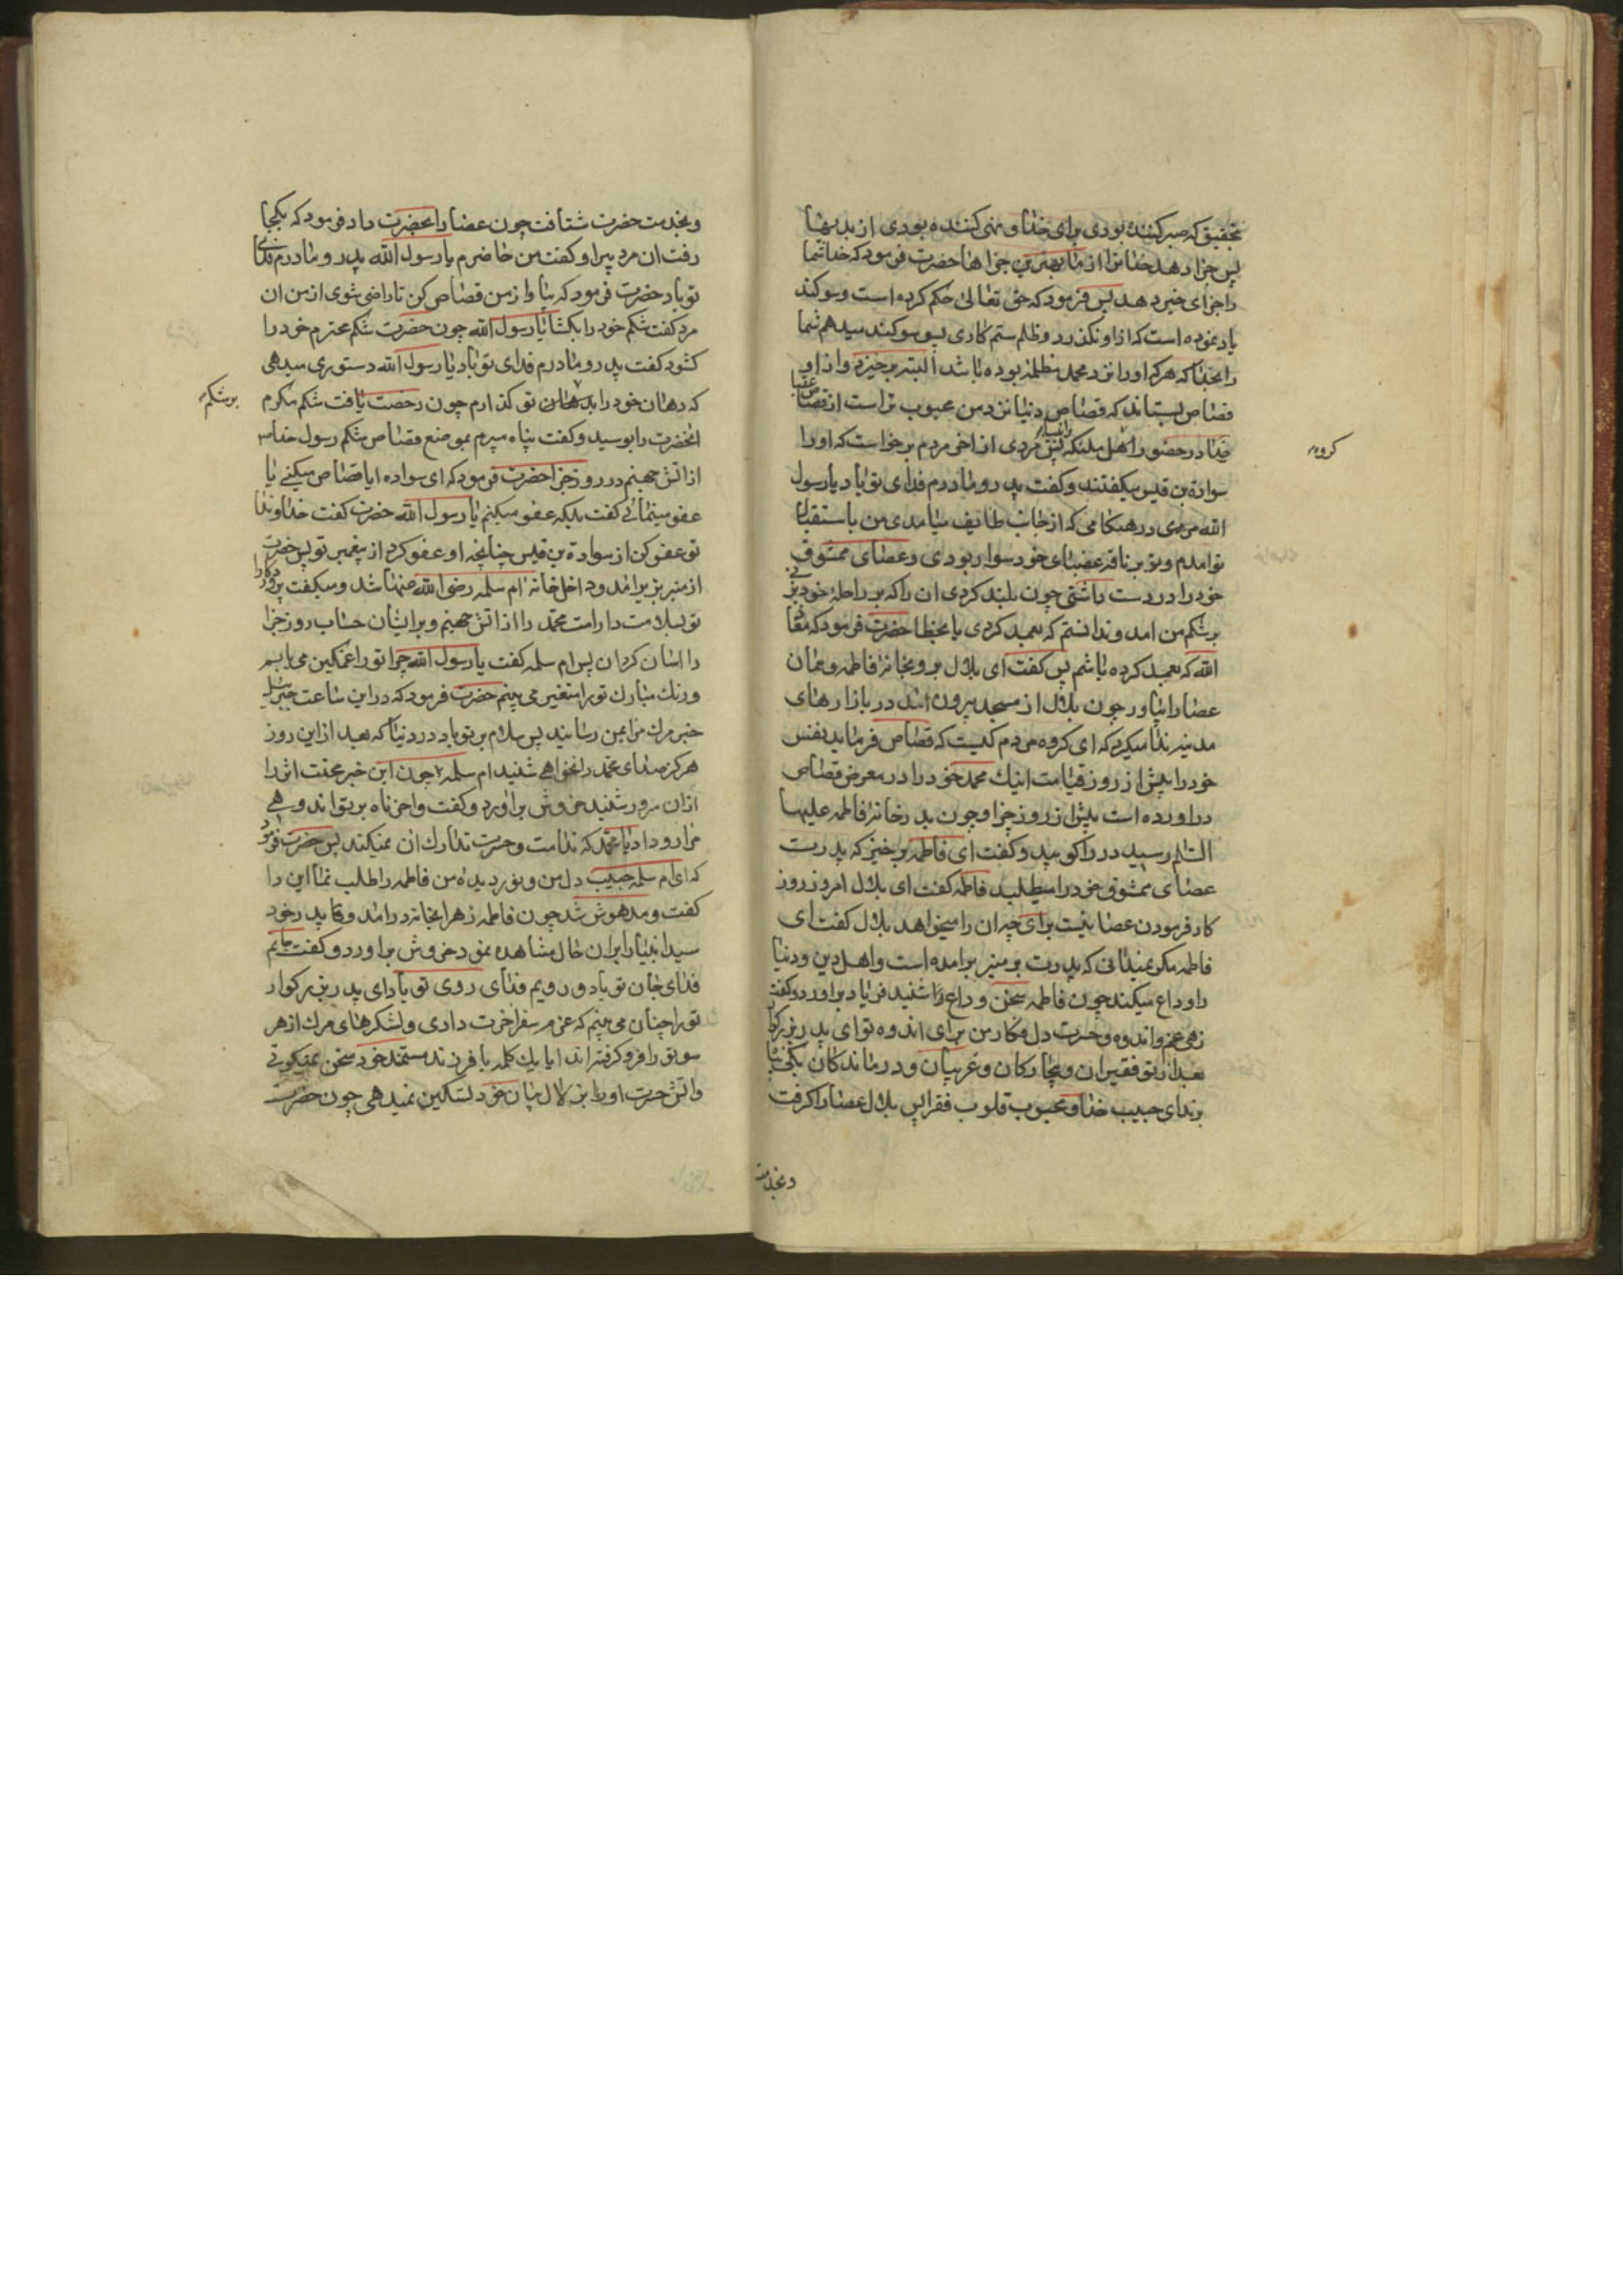 بتحقیق که صبر کننده بودی برای خدا و نهی کننده بودی از بدیها
پس جزا دهد خدا ترا از ما بهترین جزاها حضرت فرمود که خدا شما
را جزای خیر دهد پس فرمود که حق تعالی حکم کرده است و سوکند
یاد نموده است که از او نکذرد و ظلم ستم کاری پس سوکند میدهم شما
را بخدا که هر که او را نزد محمد مظلمه بوده باشد البته برخیزد و از او
قصاص بستاند که قصاص دنیا نزد من محبوب تر است از قصاص عقبا
در حضور اهل ملئکه و انبیا پس مردی از اخر مردم برخواست که او را
سوادة بن قیس میکفتند و کفت پدر و مادرم فدای تو باد یا رسول
الله در هنکامی که از جانب طایف میامدی من باستقبال
تو امدم و تو بر ناقه عضبای خود سوار بودی و عصای ممشوق
خود را در دست داشتی چون بلند کردی ان را که بر راحله خود بزنی
بر شکم من امد و ندانستم که بعمد کردی یا بخطا حضرت فرمود که معاذ
الله که بعمد کرده باشم پس کفت ای بلال برو بخانه فاطمه و همان
عصا را بیاور چون بلال از مسجد بیرون امد در بازارهای
مدینه ندا میکرد که ای کروه مردم کیست که قصاص فرماید نفس
خود را پیش از روز قیامت اینک محمد خود را در معرض قصاص
دراورده است پیش از روز جزا و چون بدر خانه فاطمه علیها
السلام رسید در را کوبید و کفت ای فاطمه برخیز که پدرت
عصای ممشوق خود را میطلبد فاطمه کفت ای بلال امروز روز
کار فرمودن عصا نیست برای چه ان را میخواهد بلال کفت ای
فاطمه مکر نمیدانی که پدرت بر منبر برامده است و اهل دین و دنیا
را وداع میکند چون فاطمه سخن وداع را شنید فریاد براورد و کفت
زهی غم و اندوه و حسرت دل فکار من برای اندوه تو ای پدر بزرکوار
بعد از تو فقیران و بیچارکان و غریبان و درماندکان بکی پناه
برند ای حبیب خدا و محبوب قلوب فقرا پس بلال عصا را کرفت
و بخدمت
کروه
و بخدمت حضرت شتافت چون عصا را بحضرت داد فرمود که بکجا
رفت ان مرد پیر او کفت من حاضرم یا رسول الله پدر و مادرم فدای
تو باد حضرت فرمود که بیا و از من قصاص کن تا راضی شوی از من ان
مرد کفت شکم خود را بکشا یا رسول الله چون حضرت شکم محترم خود را
کشود کفت پدر و مادرم فدای تو باد یا رسول الله دستوری میدهی
که دهان خود را بر شکم تو کذارم چون رخصت یافت شکم مکرم
انحضرت را بوسید و کفت پناه میبرم بموضع قصاص شکم رسول خدا
از اتش جهنم در روز جزا حضرت فرمود که ای سواده ایا قصاص میکنی یا
عفو مینمائی کفت بلکه عفو میکنم یا رسول الله حضرت کفت خداوندا
تو عفو کن از سوادة بن قیس چنانچه او عفو کرد از پیغمبر تو پس حضرت
از منبر بزیر امد و داخل خانه ام سلمه رضی الله عنها شد و میکفت پروردکارا
تو بسلامت دار امت محمد را از اتش جهنم و بر ایشان حساب روز جزا
را اسان کردان پس ام سلمه کفت یا رسول الله چرا تو را غمکین می یابم
و رنک مبارک تو را متغیر می بینم حضرت فرمود که در این ساعت جبرئیل
خبر مرک مرا بمن رسانید پس سلام بر تو باد در دنیا که بعد از این روز
هرکز صدای محمد را نخواهی شنید ام سلمه چون این خبر محنت اثر را
از ان سرور شنید خروش براورد و کفت واحزناه بر تو اندوهی
مرا رو داد یا محمد که ندامت و حسرت تدارک ان نمیکند پس حضرت فرمود
که ای ام سلمه حبیب دل من و نور دیده من فاطمه را طلب نما این را
کفت و مدهوش شد چون فاطمه زهرا بخانه درامد و پدر خود
سید انبیا را بر ان حال مشاهده نمود خروش براورد و کفت جانم
فدای جان تو باد و رویم فدای روی تو باد ای پدر بزرکوار
تو را چنان می بینم که عزم سفر اخرت داری و لشکرهای مرک از هر
سو تو را فرو کرفته اند ایا یک کلمه با فرزند مستمند خود سخن نمیکوئی
و اتش حسرت او را بزلال بیان خود تسکین نمیدهی چون حضرت
بر شکم